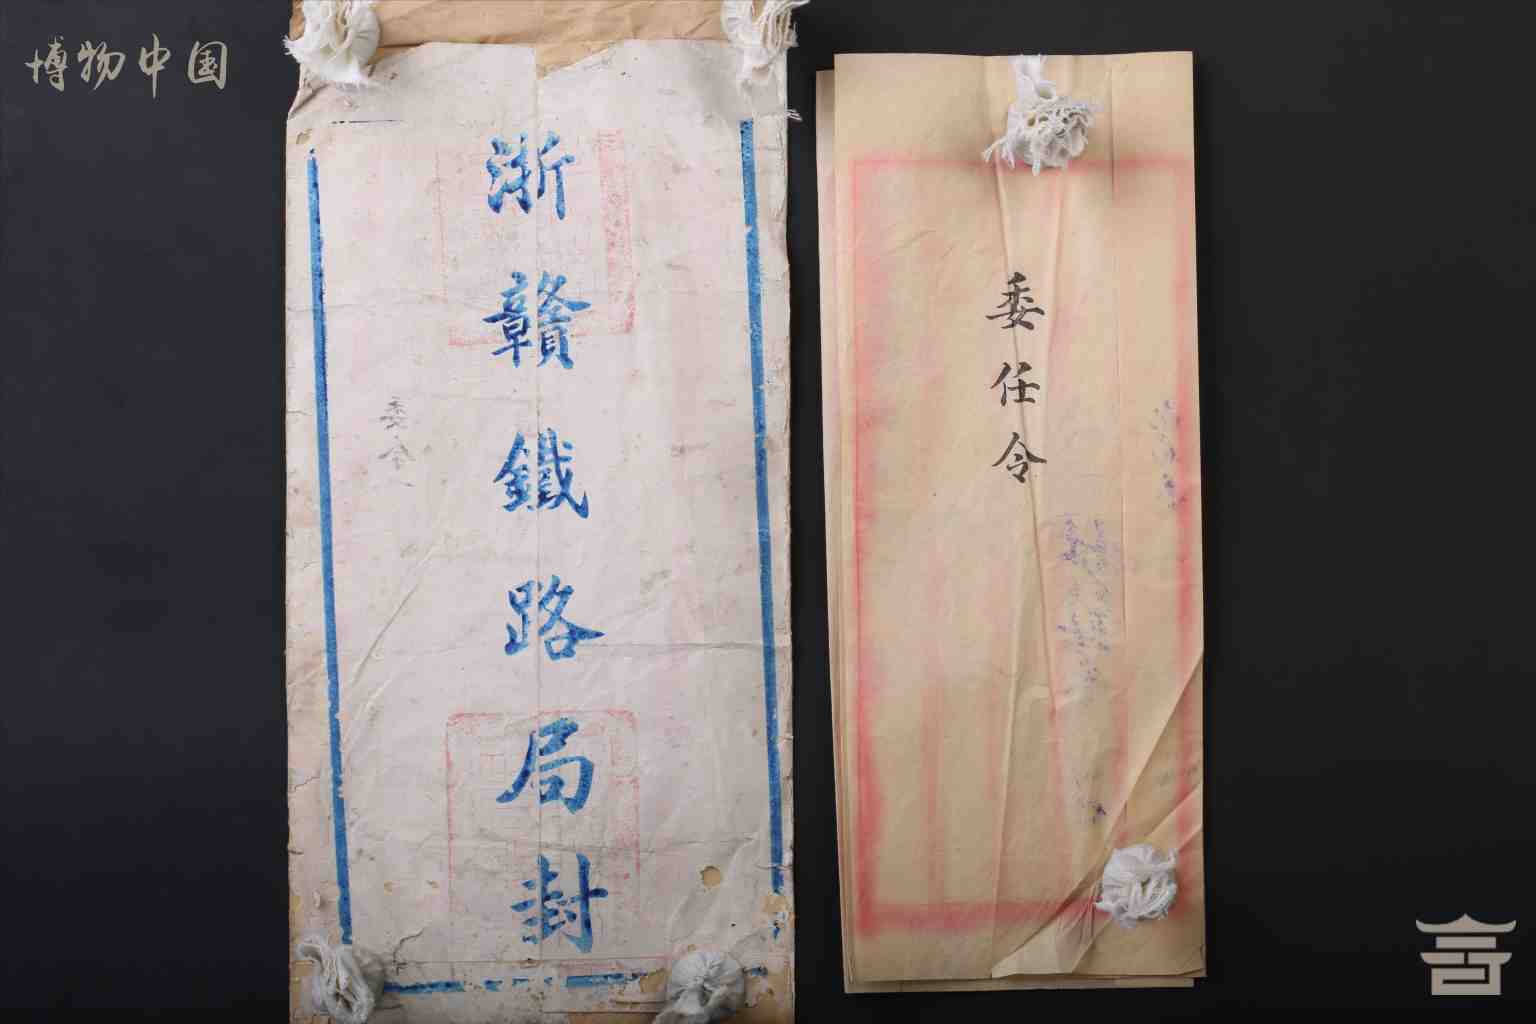 博物中国
浙贛鐵路局封
委令
委任令